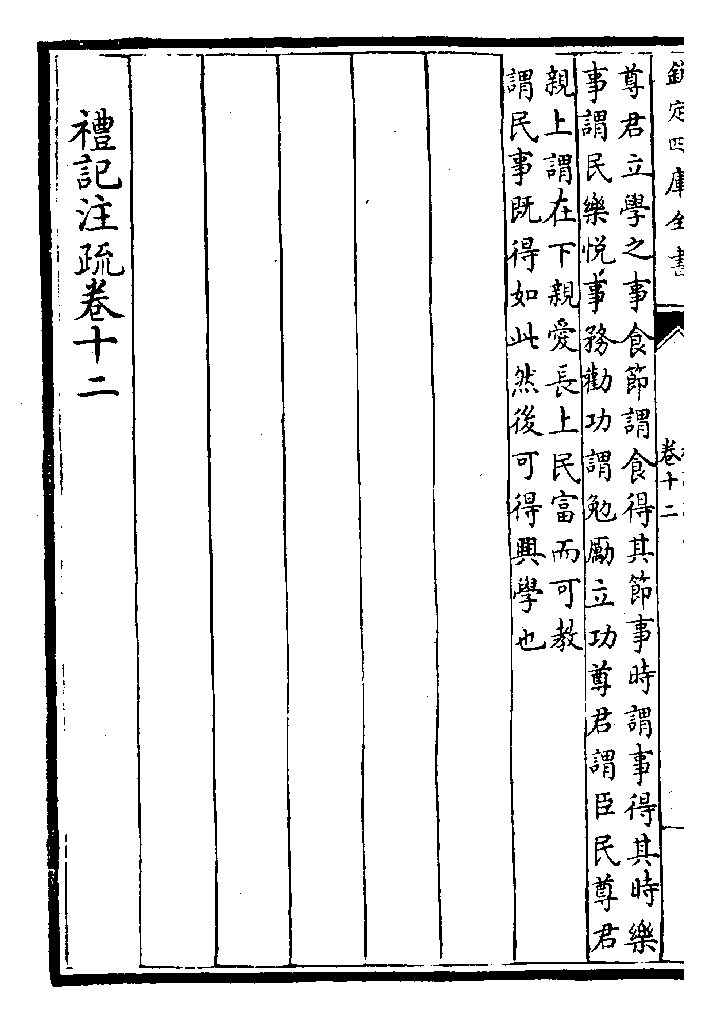 欽定四庫全書
卷十二
尊君立學之事食節謂食得其節事時謂事得其時樂
事謂民樂悅事務勸功謂勉勵立功尊君謂臣民尊君
親上謂在下親愛長上民富而可教
謂民事既得如此然後可得興學也
禮記注疏卷十二